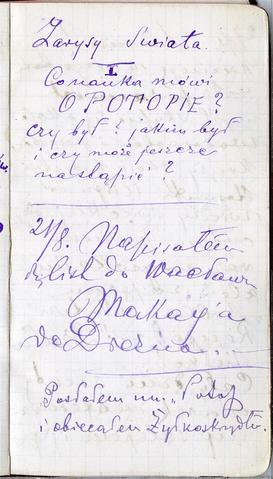 Zarysy Świata.
I
Co nauka mówi
O POTOPIE?
czy był? jakim był
i czy może jeszcze
nastąpić?
21/8. Napisałem
list do Wacława
Makay'a
do
Posłałem mu „Potop
i obiecałem